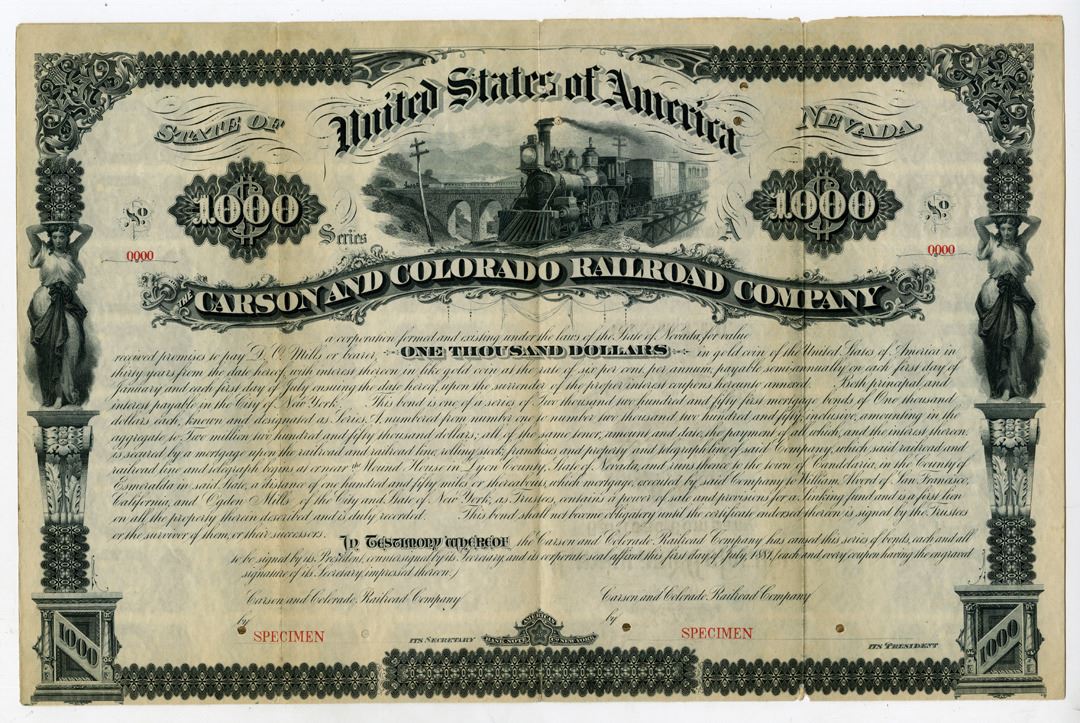 United States of America
STATE OF NEVADA
1000 1000
No No
Series A
0000 0000
THE CARSON AND COLORADO RAILROAD COMPANY
a corporation formed and existing under the laws of the State of Nevada, for value
received promises to pay D. O. Mills or bearer, ONE THOUSAND DOLLARS in gold coin of the United States of America in
thirty years from the date hereof, with interest thereon in like gold coin at the rate of six per cent. per annum, payable semi-annually on each first day of
January and each first day of July ensuing the date hereof, upon the surrender of the proper interest coupons hereunto annexed. Both principal and
interest payable in the City of New York. This bond is one of a series of Two thousand two hundred and fifty first mortgage bonds of One thousand
dollars each, known and designated as Series A, numbered from number one to number two thousand two hundred and fifty, inclusive, amounting in the
aggregate to Two million two hundred and fifty thousand dollars; all of the same tenor, amount and date, the payment of all which, and the interest thereon
is secured by a mortgage upon the railroad and railroad line, rolling stock, franchises and property and telegraph line of said Company, which said railroad and
railroad line and telegraph begins at or near the Mound House in Lyon County, State of Nevada, and runs thence to the town of Candelaria, in the County of
Esmeralda in said State, a distance of one hundred and fifty miles or thereabouts, which mortgage, executed by said Company to William Alvord of San Francisco,
California, and Ogden Mills of the City and State of New York, as Trustees, contains a power of sale and provisions for a Sinking fund and is a first lien
on all the property therein described and is duly recorded. This bond shall not become obligatory until the certificate endorsed hereon is signed by the Trustees
or the survivor of them, or their successors.
In Testimony Whereof, the Carson and Colorado Railroad Company has caused this series of bonds, each and all
to be signed by its President, countersigned by its Secretary, and its corporate seal affixed this first day of July, 1881, (each and every coupon having the engraved
signature of its Secretary, impressed thereon.)
Carson and Colorado Railroad Company Carson and Colorado Railroad Company
by SPECIMEN ITS SECRETARY by SPECIMEN ITS PRESIDENT
AMERICAN
BANK NOTE CO. NEW YORK
1000 1000